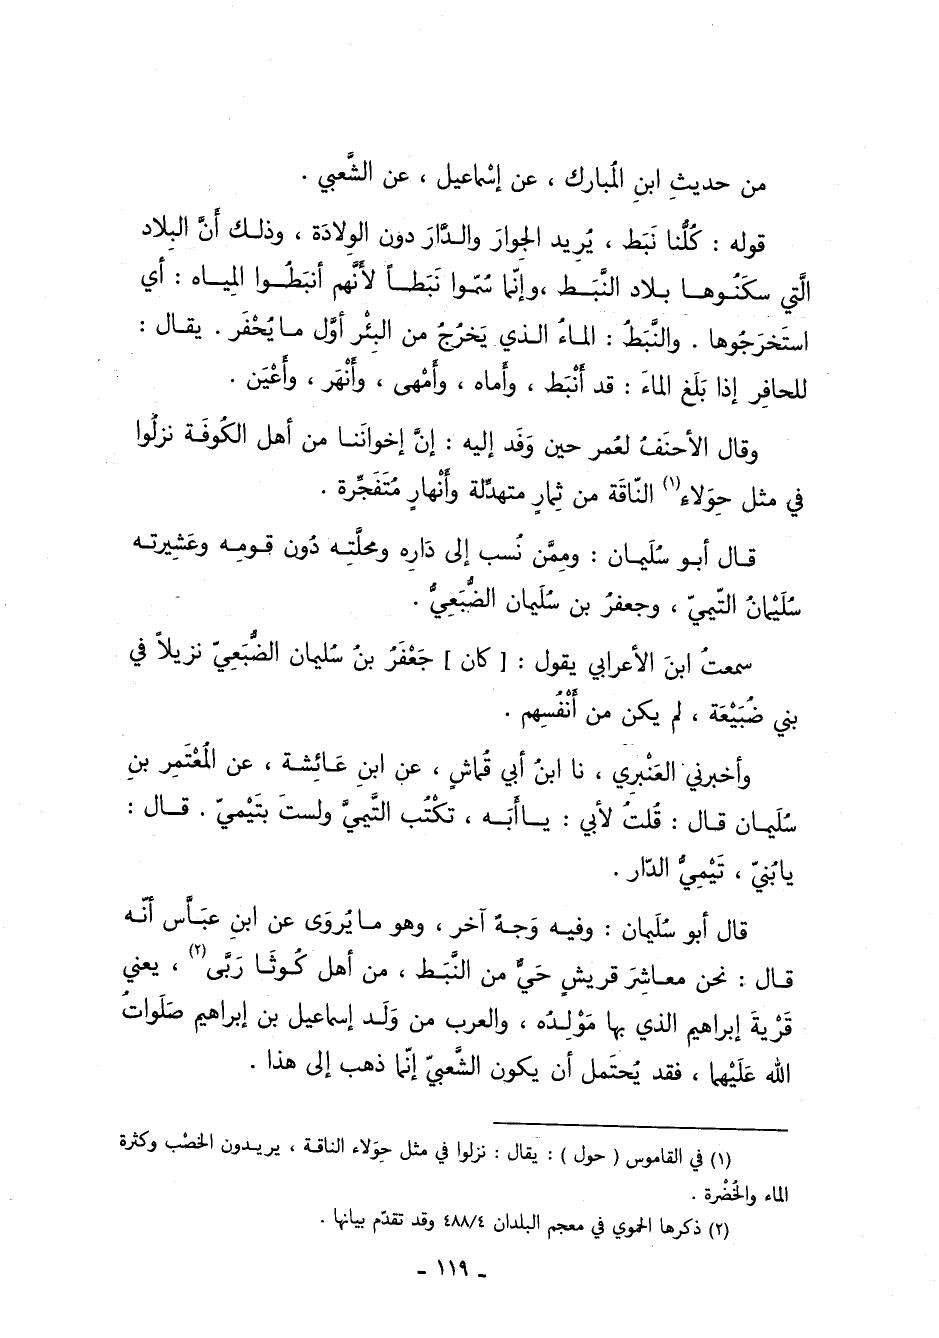 من حديثِ ابنِ المُبارك ، عن إسْماعيل ، عن الشَّعبي .
قوله : كُلُّنا نَبَط ، يُريد الجوارَ والـدَّارَ دون الوِلادَة ، وذلـك أَنَّ البِلاد
الَّتي سكَنُوهـا بـلاد النَّبَـط ،وإنّما سُمّوا نَبَطـاً لأَنَّهم أنبَطُـوا المِيـاه : أي
استَخرَجُوها . والنَّبَطُ : المـاءُ الـذي يَخرُجُ من البِئْر أوَّل مـايُحْفَر . يقـال :
للحافِر إذا بَلَغ الماءَ : قد أَنْبَط ، وأَماه ، وأَمْهى ، وأَنْهَر ، وأَعْيَن .
وقال الأحنَفُ لعُمر حين وَفَد إليه : إنَّ إخوانَنـا من أهل الكُوفَـة نزلُوا
في مثل حِوَلاءِ(١) النّاقَة من ثِمارٍ متهدِّلة وأَنْهارٍ مُتَفَجِّرة .
قـال أبـو سُلَيمان : وممَّن نُسب إلى دَارِه ومحلَّتِـه دُون قـومِـه وعَشِيرتـه
سُلَيْمانُ التّيميّ ، وجعفرُ بن سُلَيمان الضُّبَعِيُّ .
سمعتُ ابنَ الأعرابي يقول : [ كان ] جَعْفَرُ بنُ سُليمان الضُّبَعِيّ نزيلاً في
بني ضُبَيْعَة ، لم يكن من أَنْفُسِهم .
وأخبرني العَنْبري ، نا ابنُ أبي قُماشٍ ، عن ابنِ عَـائِشـة ، عن المُعْتَمِر بنِ
سُلَيمـان قـال : قُلتُ لأبي : يــاأَبَـه ، تكْتُب التَّيميَّ ولستَ بتَيْمِيّ . قـال :
يابُنيّ ، تَيْمِيُّ الدّار .
قال أبو سُلَيمان : وفيـه وَجـهٌ آخر ، وهو مـايُروَى عن ابنِ عبَـاس أنّـه
قـال : نحن معـاشِرَ قريشٍ حَيٌّ من النَّبَـط ، من أهل كُـوثَـا رَبَّى(٢) ، يعني
قَرْيةَ إبراهيم الذي بها مَوْلِـدُه ، والعرب من وَلَـد إسماعيل بن إبراهيم صَلَواتُ
الله عَلَيْهما ، فقد يُحتَمل أن يكون الشَّعبيّ إنّما ذهب إلى هذا .
(١) في القاموس ( حول ) : يقال : نزلوا في مثل حِوَلاء الناقـة ، يريـدون الخصْب وكثرة
الماء والخُضْرة .
(٢) ذكرها الحموي في معجم البلدان ٤٨٨/٤ وقد تقدّم بيانها .
ـ ١١٩ ـ